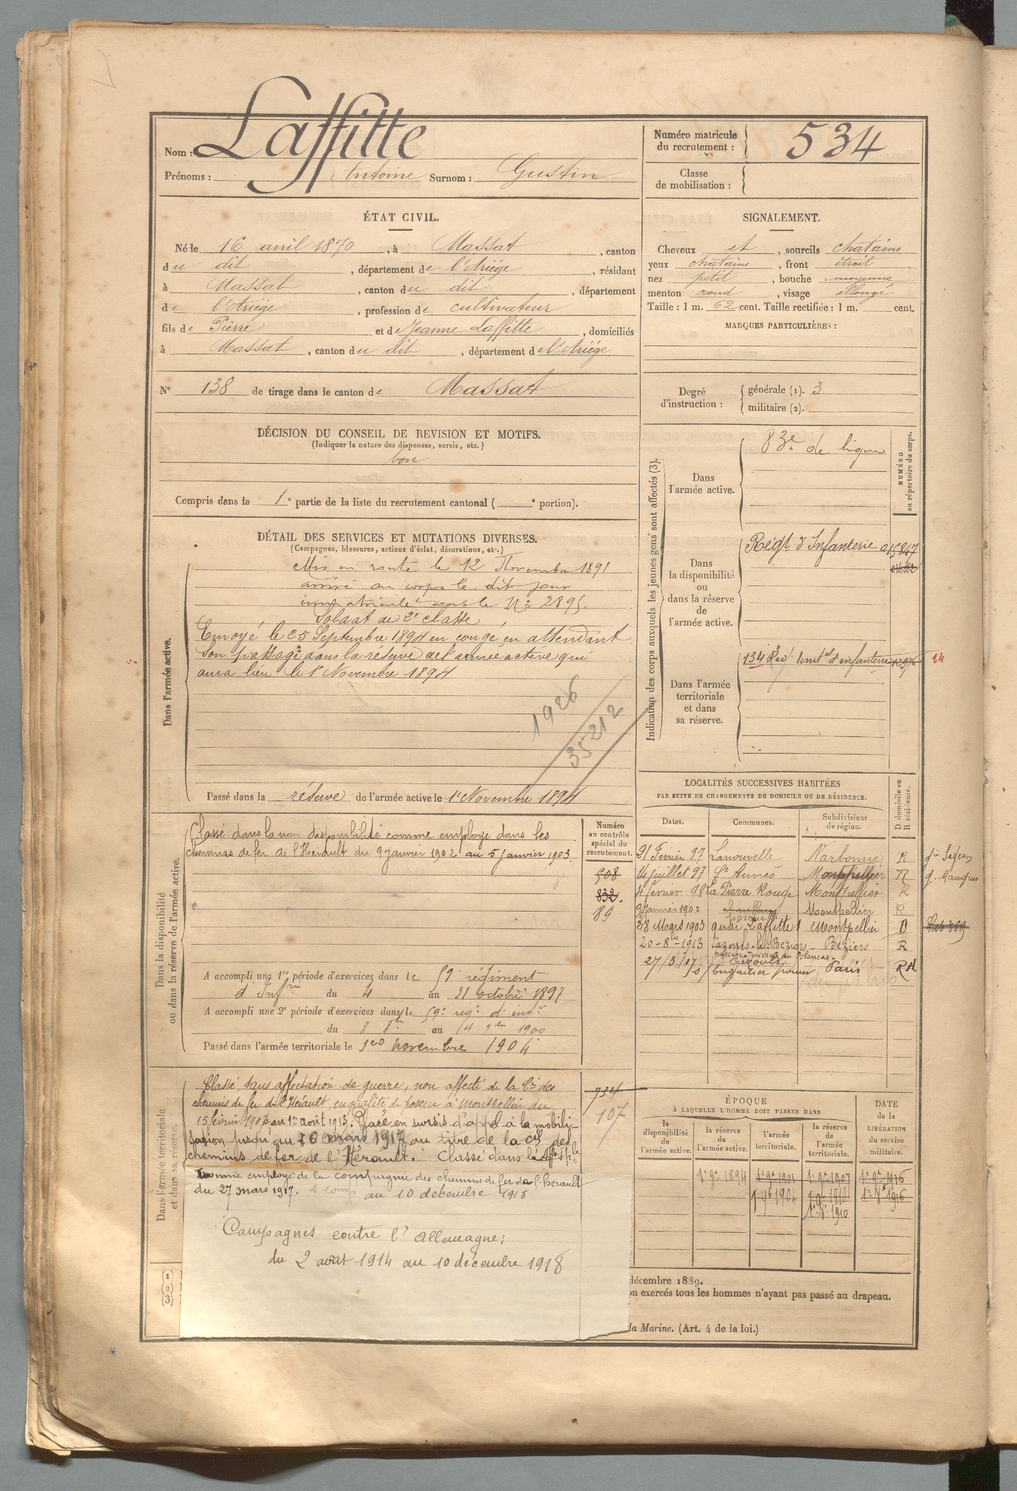 Nom : Laffitte
Prénoms : Antoine Surnom : Gustin
Numéro matricule du recrutement : 534
Classe de mobilisation :
ÉTAT CIVIL.
Né le 16 avril 1870, à Massat, canton
du dit, département de l'Ariége, résidant
à Massat, canton du dit, département
de l'Ariége, profession de cultivateur
fils de Pierre et de Jeanne Laffitte, domiciliés
à Massat, canton du dit, département de l'Ariége
N° 138 de tirage dans le canton de Massat
SIGNALEMENT.
Cheveux et, sourcils chatains
yeux chatains, front étroit
nez petit, bouche moyenne
menton rond, visage allongé
Taille : 1 m. 62 cent. Taille rectifiée : 1 m. cent.
MARQUES PARTICULIÈRES :
Degré d'instruction : générale (1). 3
militaire (2).
DÉCISION DU CONSEIL DE REVISION ET MOTIFS.
(Indiquer la nature des dispenses, sursis, etc.)
bon
Compris dans la 1e partie de la liste du recrutement cantonal ( e portion).
DÉTAIL DES SERVICES ET MUTATIONS DIVERSES.
(Campagnes, blessures, actions d'éclat, décorations, etc.)
Dans l'armée active.
Mis en route le 12 Novembre 1891
arrivé au corps le dit jour
immatriculé sous le N°
Soldat de 2e classe
Envoyé le 25 Septembre 1894 en congé en attendant
son passage dans la réserve de l'armée active qui
aura lieu le 1er Novembre 1894
1926
35212
Passé dans la réserve de l'armée active le 1er Novembre 1894
Indication des corps auxquels les jeunes gens sont affectés (3).
NUMÉRO au répertoire du corps.
Dans l'armée active.
83e de ligne
Dans la disponibilité ou dans la réserve de l'armée active.
Régt d'Infanterie
Dans l'armée territoriale et dans sa réserve.
134 Régt territ d'infanterie
14
LOCALITÉS SUCCESSIVES HABITÉES
PAR SUITE DE CHANGEMENTS DE DOMICILE OU DE RÉSIDENCE.
D domicile ou R résidence.
Dates. Communes. Subdivisions de région.
21 Février 97 Lanouvelle Narbonne R
14 juillet 97 St Aunès Montpellier R
4 février 98 La Pierre Rouge Montpellier R
9 Janvier 1902 Montpellier R
28 Mars 1903 quai Laffitte 1 Montpellier D
20-8-1913 Cazouls-lès-Béziers Béziers R
27/3/17 Paris
Dans la disponibilité ou dans la réserve de l'armée active.
Classé dans la non disponibilité comme employé dans les
chemins de fer de l'Hérault du 9 janvier 1902 au 5 janvier 1903
Numéro au contrôle spécial du recrutement.
508
832
89
A accompli une 1re période d'exercices dans le 59 régiment
d'Infrie du 4 au 31 octobre 1897
A accompli une 2e période d'exercices dans le 59e regt d'infie
du 8 au 14 1900
Passé dans l'armée territoriale le 1er novembre 1904
Dans l'armée territoriale et dans sa réserve.
Classé sans affectation de guerre, non affecté de la Cie des
chemins de fer de l'Hérault, en qualité de poseur à Montpellier du
15 février 1907 au 12 août 1913. Placé en sursis d'appel à la mobili-
sation jusqu'au 26 mars 1917 au titre de la Cie des
chemins de fer de l'Hérault. Classé dans l'affon sple
comme employé de la compagnie des chemins de fer de l'Hérault
du 27 mars 1917. au 10 décembre 1918
Campagnes contre l'Allemagne :
du 2 août 1914 au 10 décembre 1918
107
ÉPOQUE
À LAQUELLE L'HOMME DOIT PASSER DANS
la disponibilité de l'armée active.
la réserve de l'armée active.
l'armée territoriale.
la réserve de l'armée territoriale.
DATE de la LIBÉRATION du service militaire.
1er 9bre 1894
1er 9bre 1904
(1) (2) (3)
décembre 1889.
on exercés tous les hommes n'ayant pas passé au drapeau.
la Marine. (Art. 4 de la loi.)